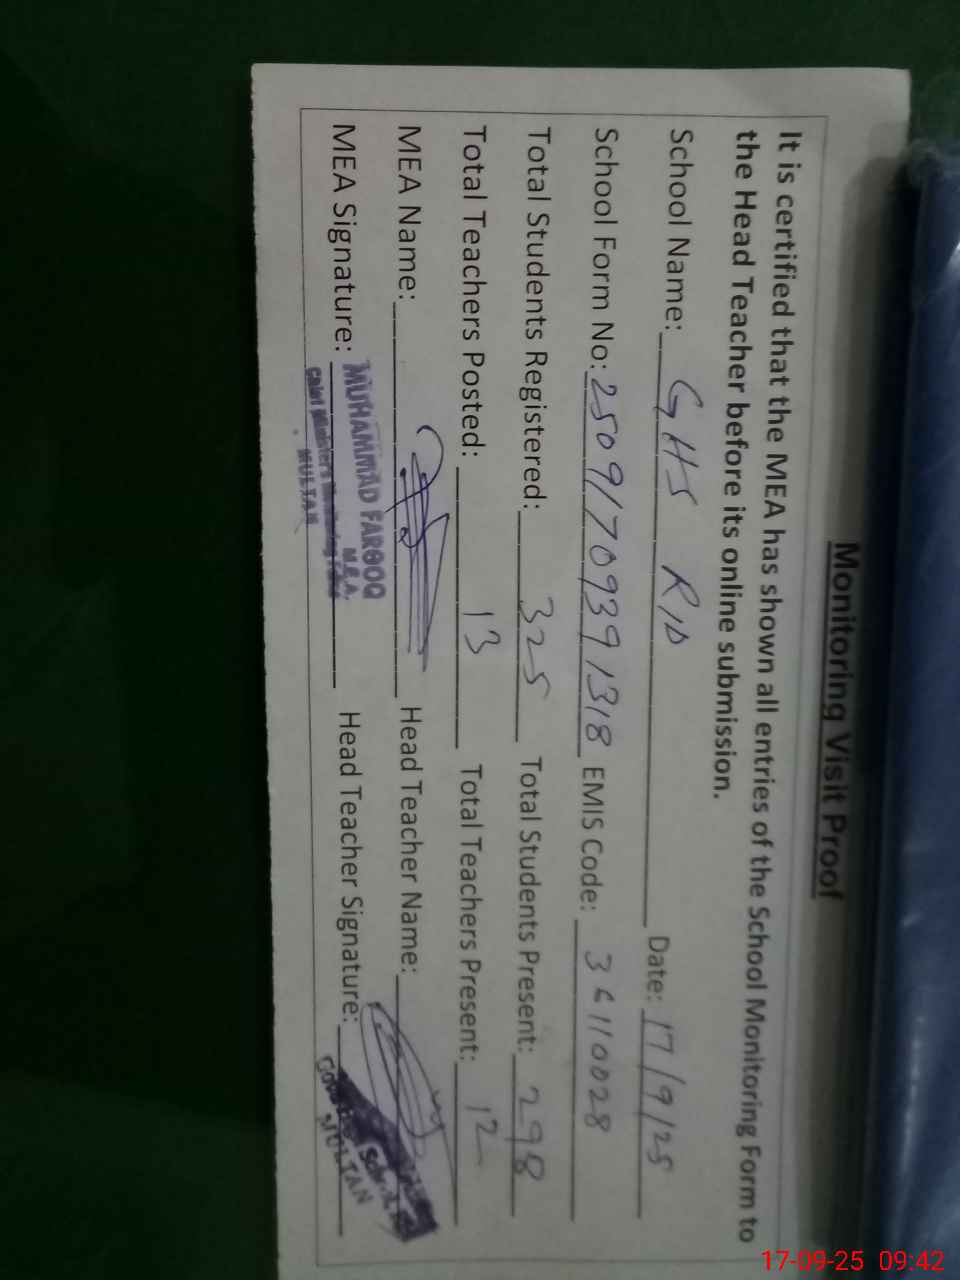 Monitoring Visit Proof
It is certified that the MEA has shown all entries of the School Monitoring Form to
the Head Teacher before its online submission.
School Name: GHS RID Date: 17/9/25
School Form No: 25091709391318 EMIS Code: 36110028
Total Students Registered: 325 Total Students Present: 298
Total Teachers Posted: 13 Total Teachers Present: 12
MEA Name: Head Teacher Name:
MEA Signature: Head Teacher Signature:
MUHAMMAD FAROOQ
M.E.A.
Chief Minister's Monitoring
MULTAN
MULTAN
17-09-25 09:42